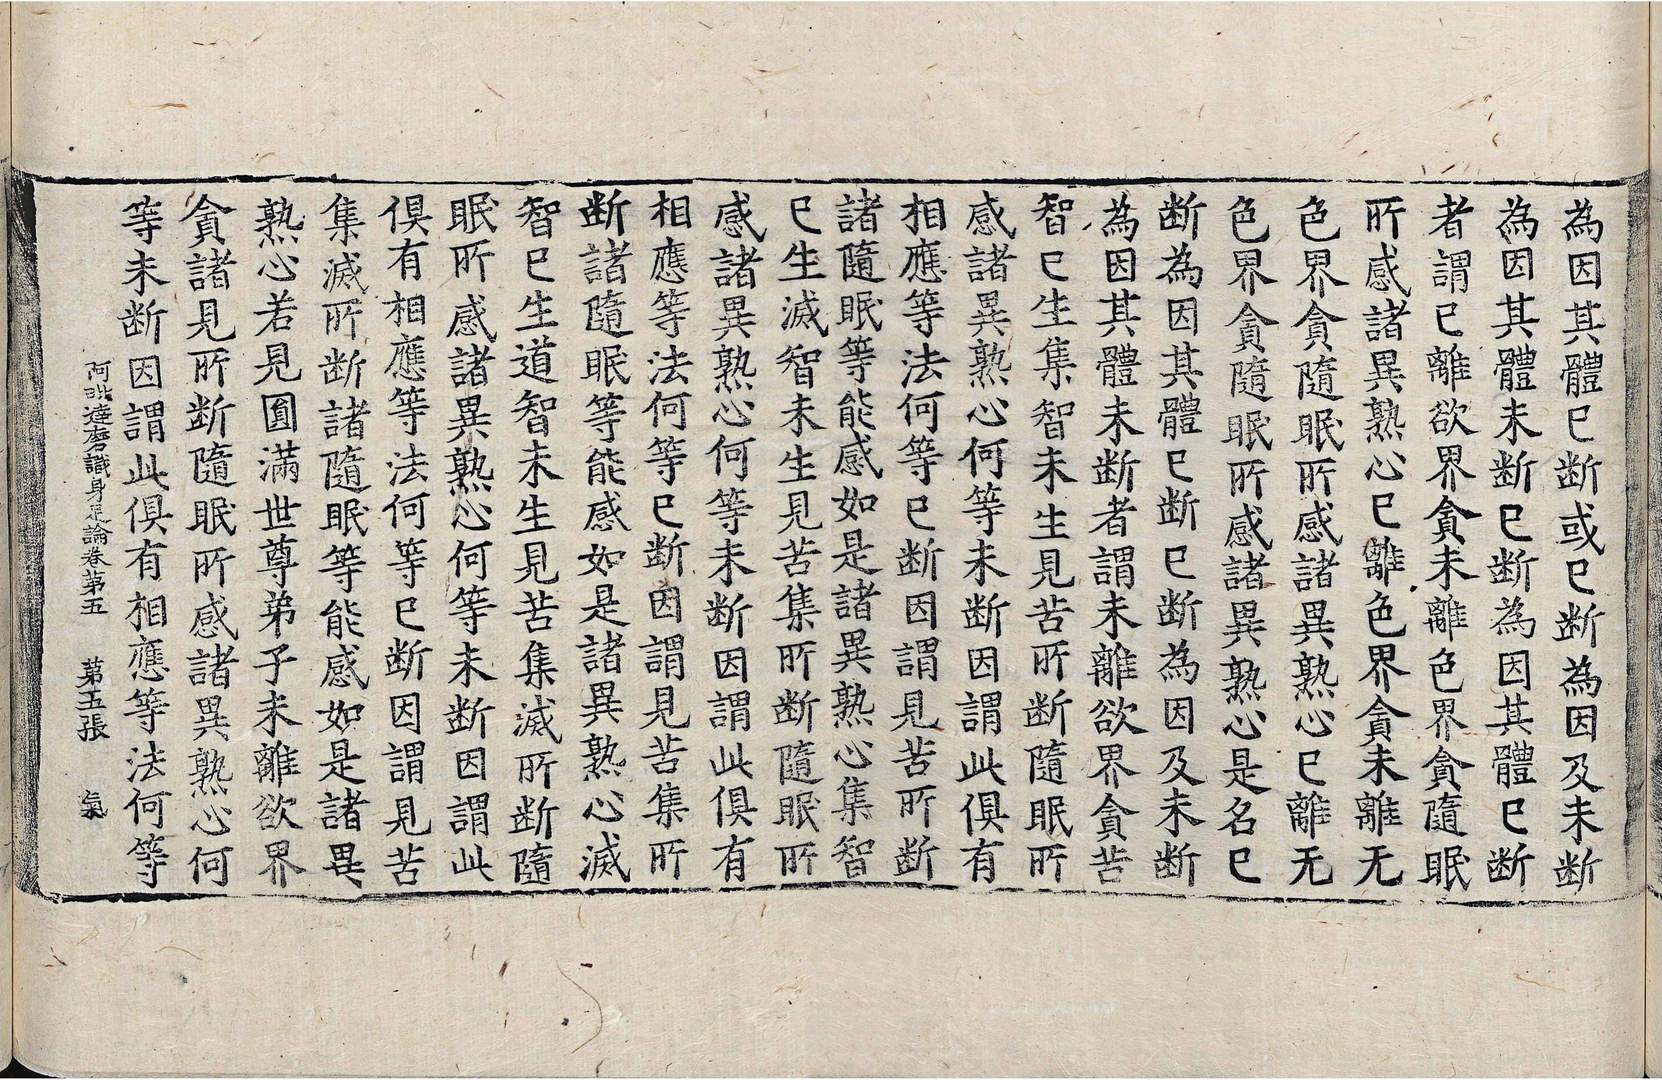 為因其體已断或已断為因及未断
為因其體未断已断為因其體已断
者謂已離欲界貪未離色界貪隨眠
所感諸異熟心已離色界貪未離无
色界貪隨眠所感諸異熟心已離无
色界貪隨眠所感諸異熟心是名已
断為因其體已断已断為因及未断
為因其體未断者謂未離欲界貪苦
智已生集智未生見苦所断隨眠所
感諸異熟心何等未断因謂此俱有
相應等法何等已断因謂見苦所断
諸隨眠等能感如是諸異熟心集智
已生滅智未生見苦集所断隨眠所
感諸異熟心何等未断因謂此俱有
相應等法何等已断因謂見苦集所
断諸隨眠等能感如是諸異熟心滅
智已生道智未生見苦集滅所断隨
眠所感諸異熟心何等未断因謂此
俱有相應等法何等已断因謂見苦
集滅所断諸隨眠等能感如是諸異
熟心若見圓滿世尊弟子未離欲界
貪諸見所断隨眠所感諸異熟心何
等未断因謂此俱有相應等法何等
阿毗達磨識身足論卷第五 第五張 氣